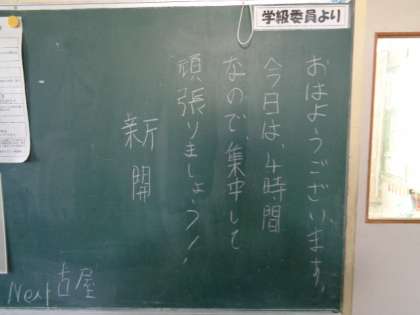 学級委員より
おはようございます。
今日は、4時間
なので、集中して
頑張りましょう!
新開
Next 古屋